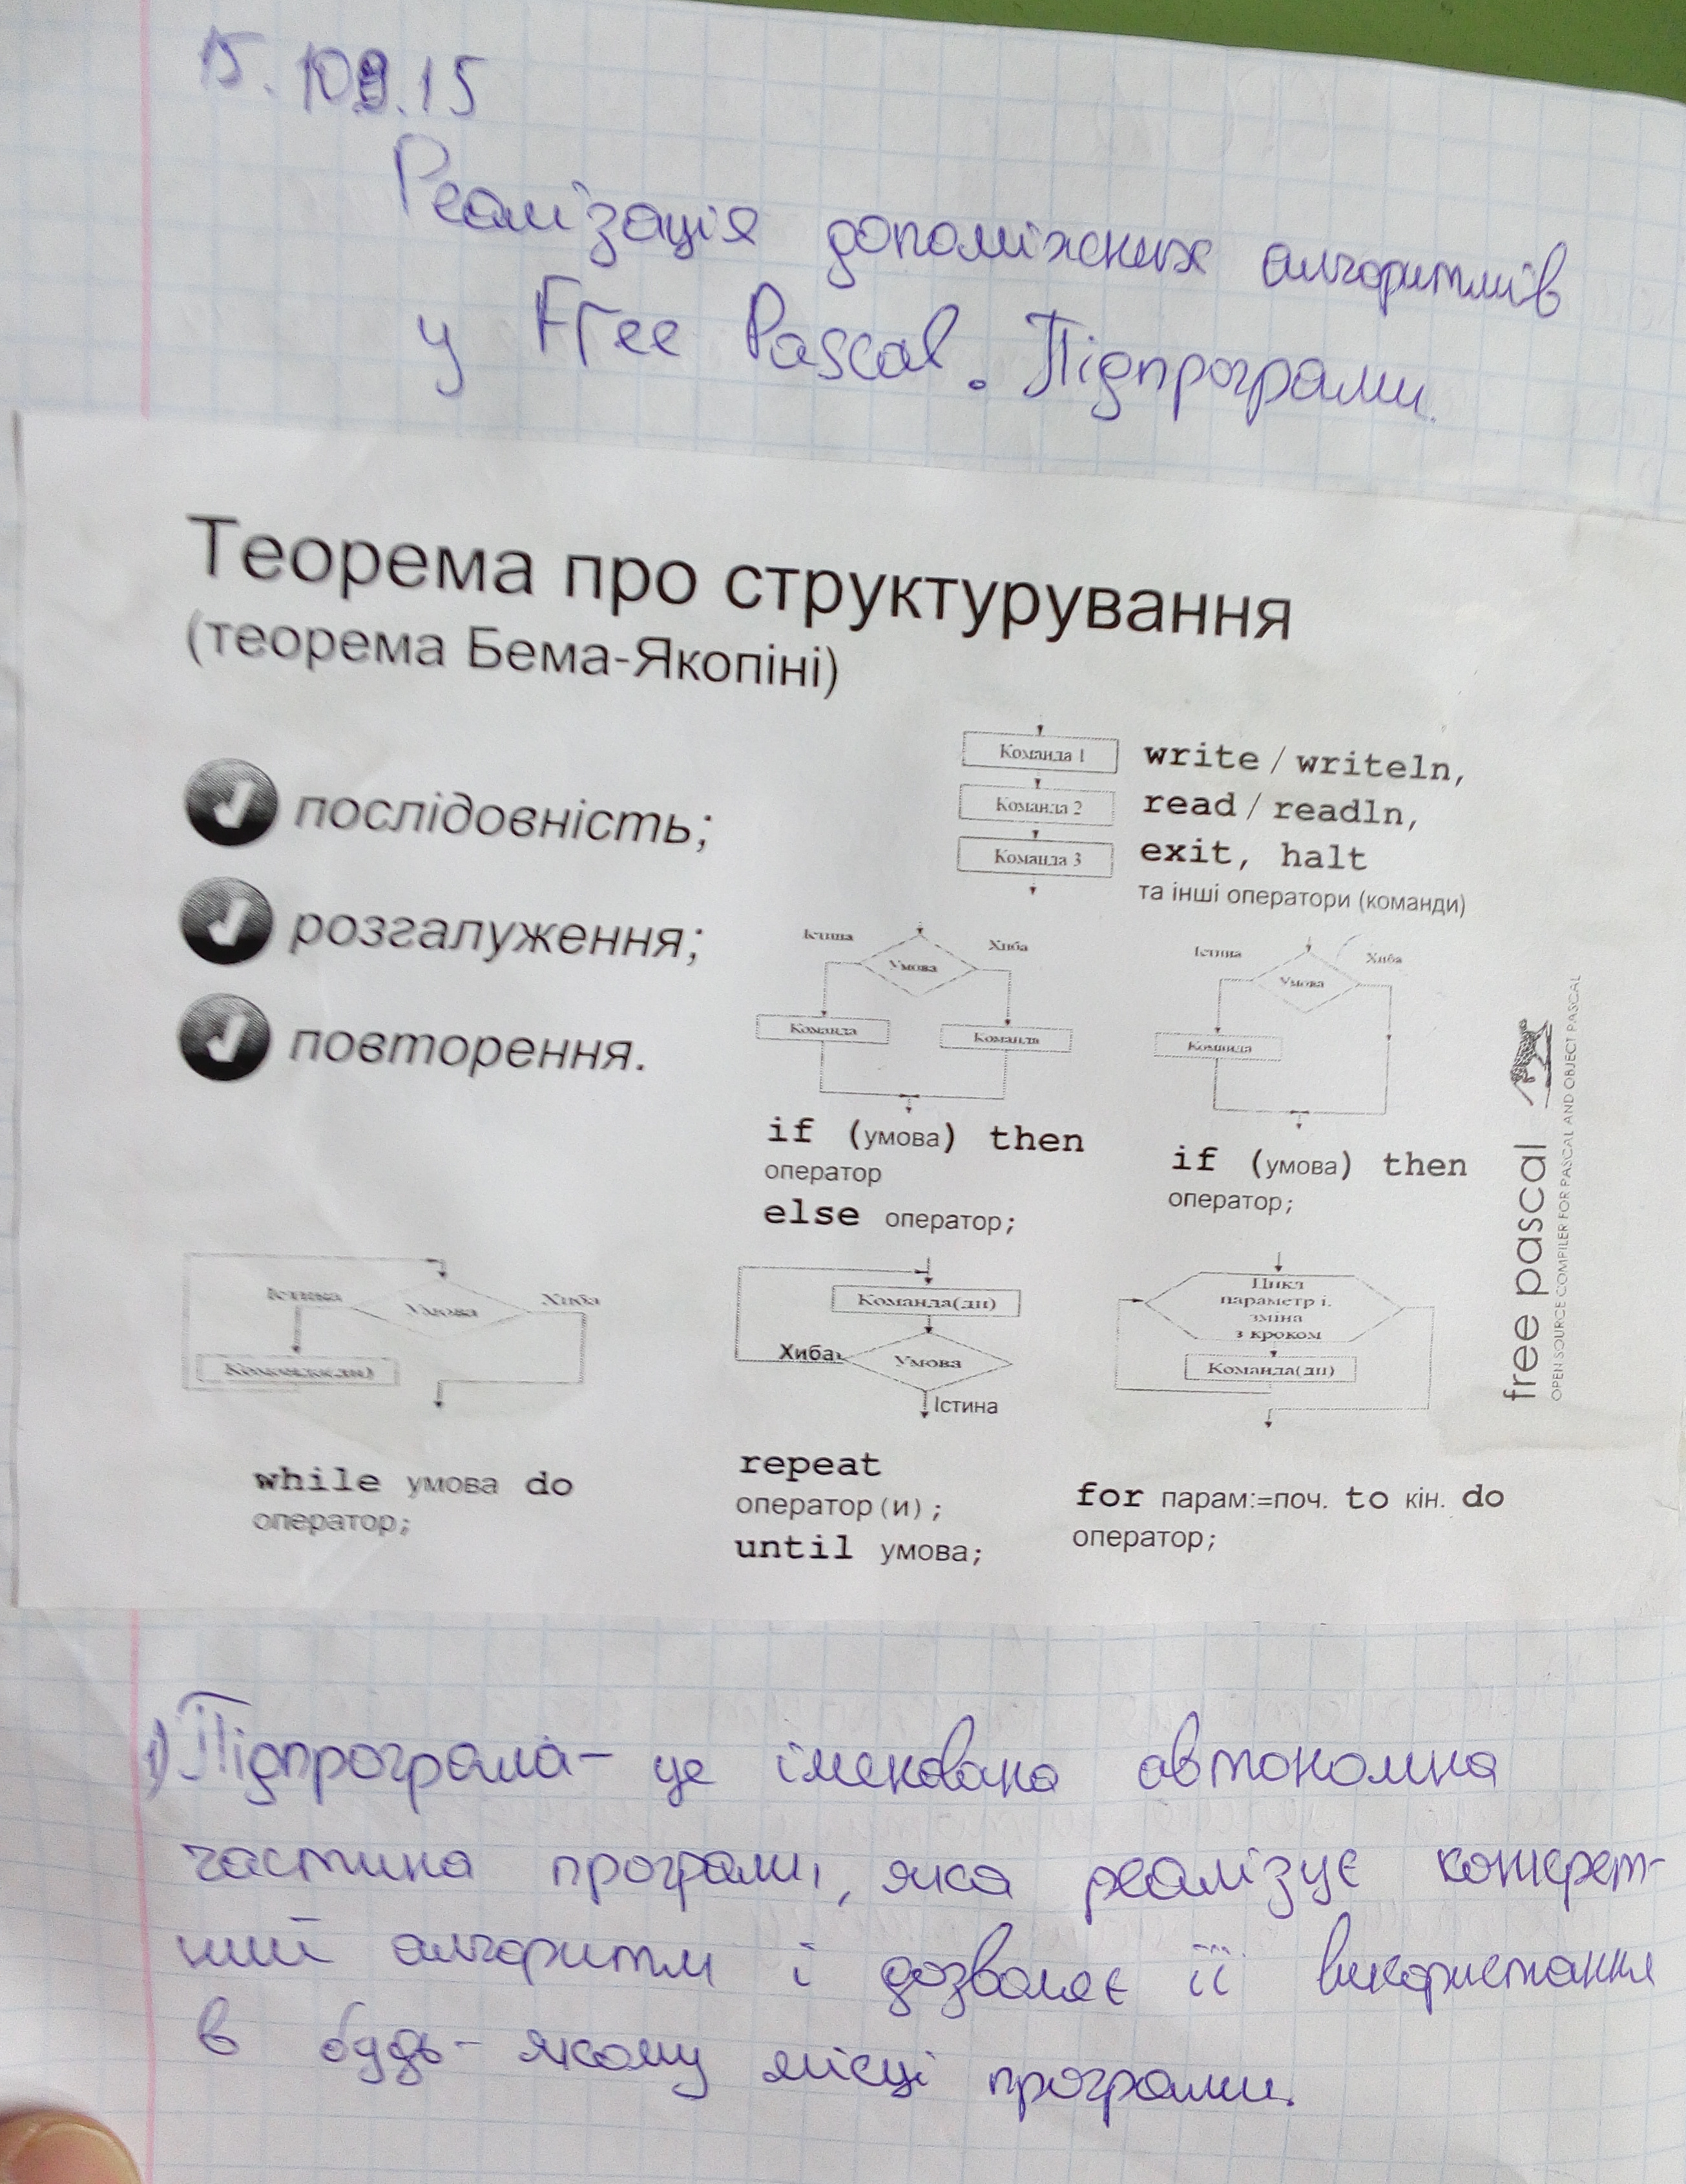 15.09.15
Реалізація допоміжних алгоритмів
у Free Pascal. Підпрограми.
Теорема про структурування
(теорема Бема-Якопіні)
послідовність;
розгалуження;
повторення.
Команда 1
Команда 2
Команда 3
write / writeln,
read / readln,
exit, halt
та інші оператори (команди)
Істина
Умова
Хиба
Команда
Команда
if (умова) then
оператор
else оператор;
Істина
Умова
Хиба
Команда
if (умова) then
оператор;
free pascal
OPEN SOURCE COMPILER FOR PASCAL AND OBJECT PASCAL
Істина
Умова
Хиба
Команда(ди)
while умова do
оператор;
Команда(ди)
Хиба
Умова
Істина
repeat
оператор(и);
until умова;
Цикл
параметр і.
зміна
з кроком
Команда(ди)
for парам:=поч. to кін. do
оператор;
1) Підпрограма – це іменована автономна
частина програми, яка реалізує конкрет-
ний алгоритм і дозволяє її використання
в будь-якому місці програми.